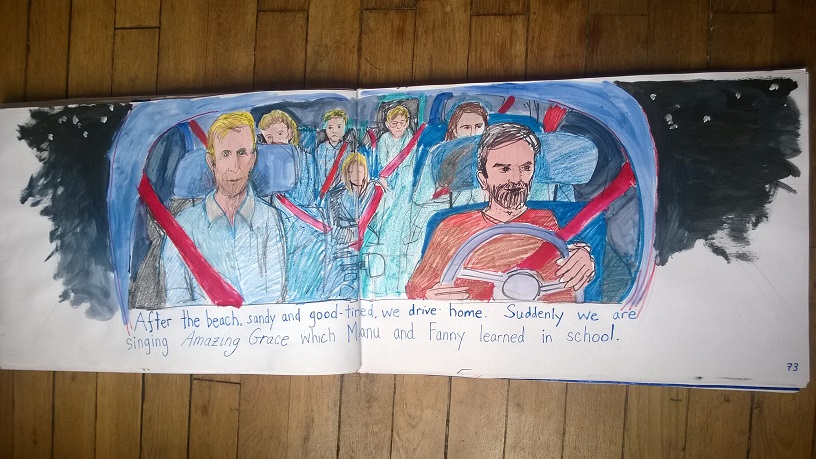 After the beach, sandy and good-tired, we drive home. Suddenly we are
singing Amazing Grace which Manu and Fanny learned in school.
73